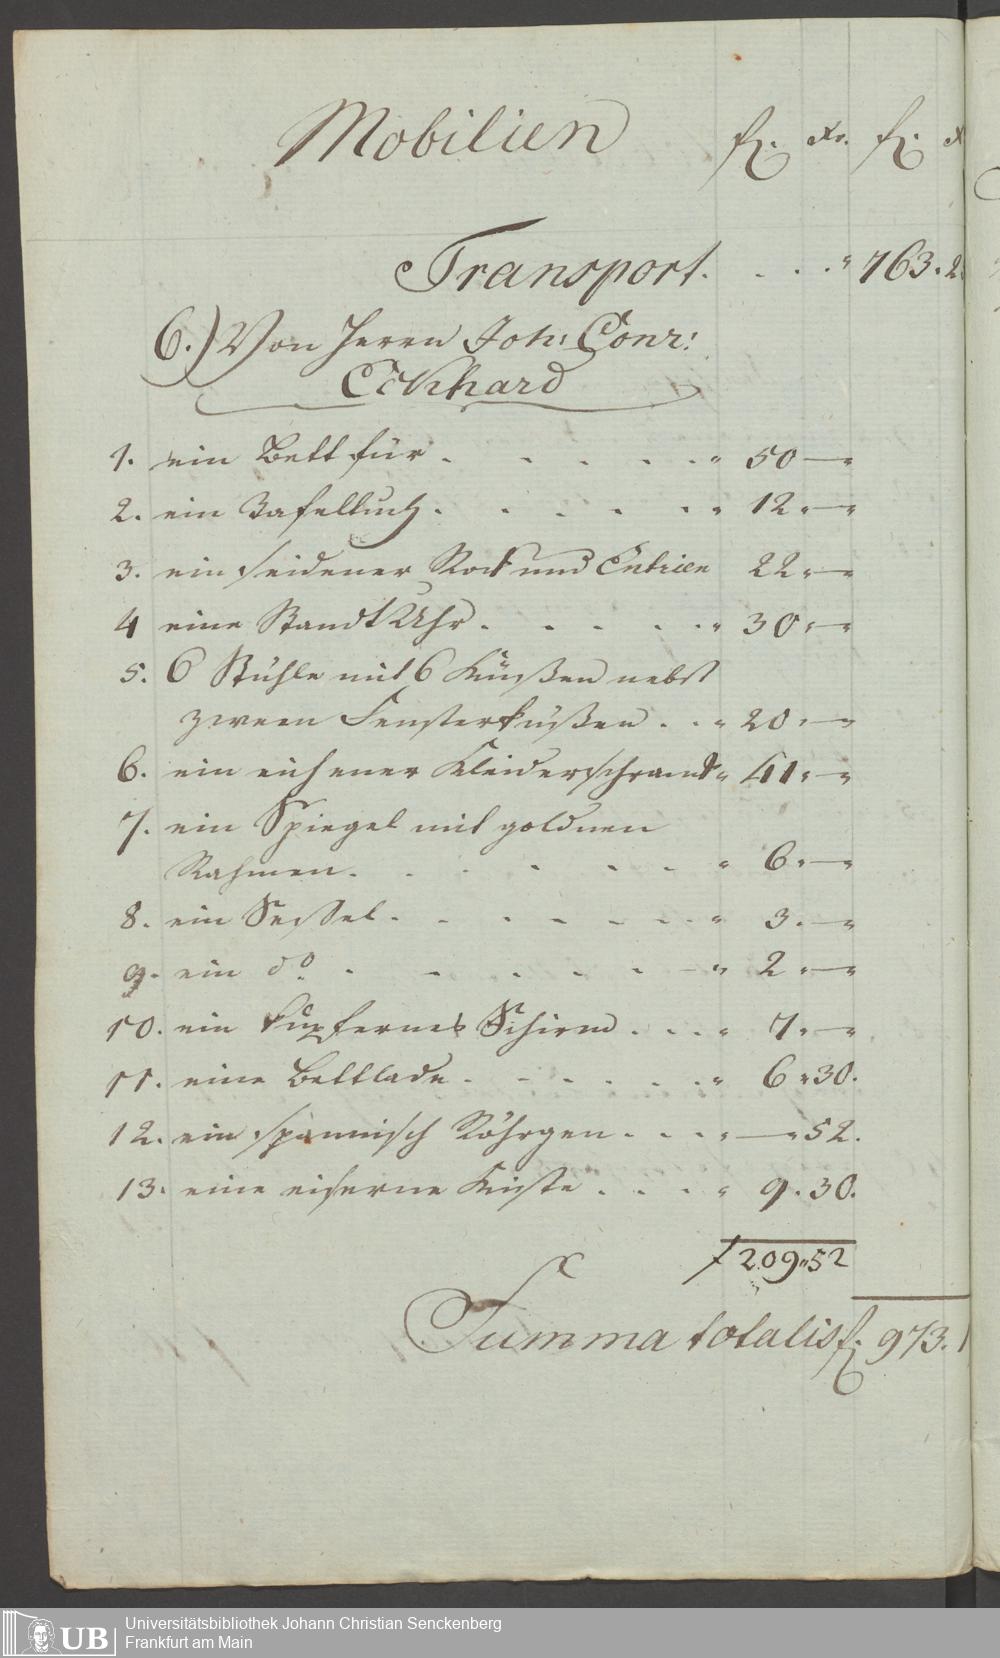 Mobilien f. xr. f. x
Transport. . . . " 763. 2
6.) Von Herrn Joh: Conr:
Eckhard
1. ein Bett für . . . . . " 50 — "
2. ein Tafeltuch . . . . . " 12 " — "
3. ein seidener Rock und 22 " — "
4 eine Standt Uhr . . . . . " 30 " — "
5. 6 Stühle mit 6 Küßen nebst
zween Fensterküßen . . " 20 " — "
6. ein eichener Kleiderschranck " 41 " — "
7. ein Spiegel mit goldnen
Rahmen . . . . . . " 6 " — "
8. ein Seßel . . . . . . . " 3 . — "
9. ein do . . . . . — " 2 " — "
10. ein kupfernes Schirm . . . " 7 " — "
11. eine Bettlade . . . . . . " 6 " 30.
12. ein spannisch Röhrgen . . . " — " 52.
13. eine eiserne Kiste . . . " 9 . 30.
f 209 " 52
Summa totalis f. 973. 1
Universitätsbibliothek Johann Christian Senckenberg
Frankfurt am Main
UB